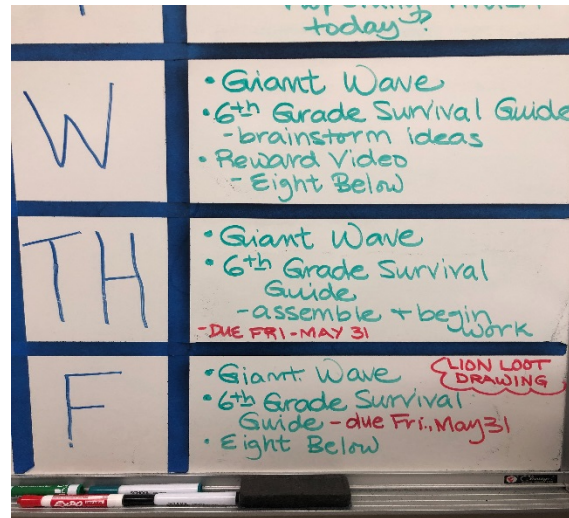 today?
W
• Giant Wave
• 6th Grade Survival Guide
- brainstorm ideas
• Reward Video
- Eight Below
TH
• Giant Wave
• 6th Grade Survival
Guide
- assemble + begin
work
- DUE FRI - MAY 31
F
• Giant Wave
LION LOOT
DRAWING
• 6th Grade Survival
Guide - due Fri., May 31
• Eight Below
EXPO